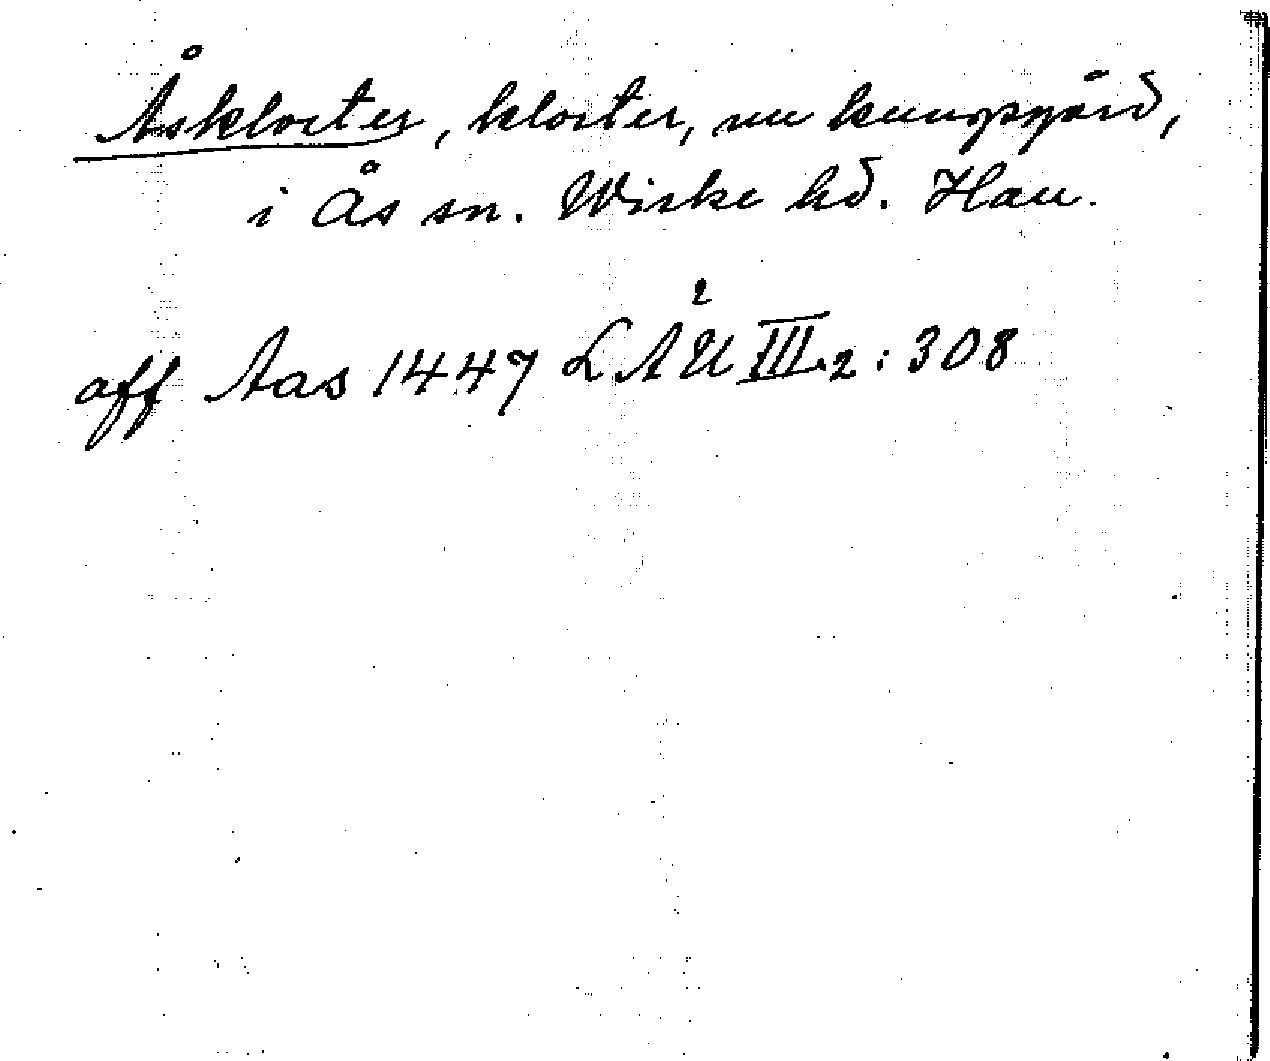 Åskloster, kloster, nu kungsgård,
i Ås sn. Wiske hd. Hall.
aff Aas 1447 LÅU III.2: 308